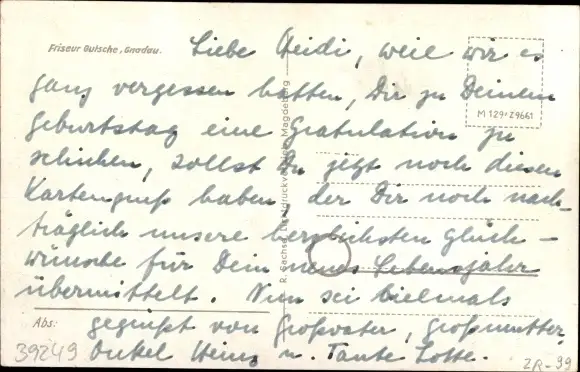 Friseur Gutsche, Gnadau.
Liebe Heidi, weil wir es
ganz vergessen hatten, Dir zu Deinem
Geburtstag eine Gratulation zu
schicken, sollst Du jetzt noch diesen
Kartengruß haben, der Dir noch nach-
träglich unsere herzlichsten Glück-
wünsche für Dein neues Lebensjahr
übermittelt. Nun sei vielmals
gegrüßt von Großvater, Großmutter,
Onkel Heinz u. Tante Lotte.
Abs:
M 129/Z9661
R. Sachse, Magdeburg
39249
ZR-99